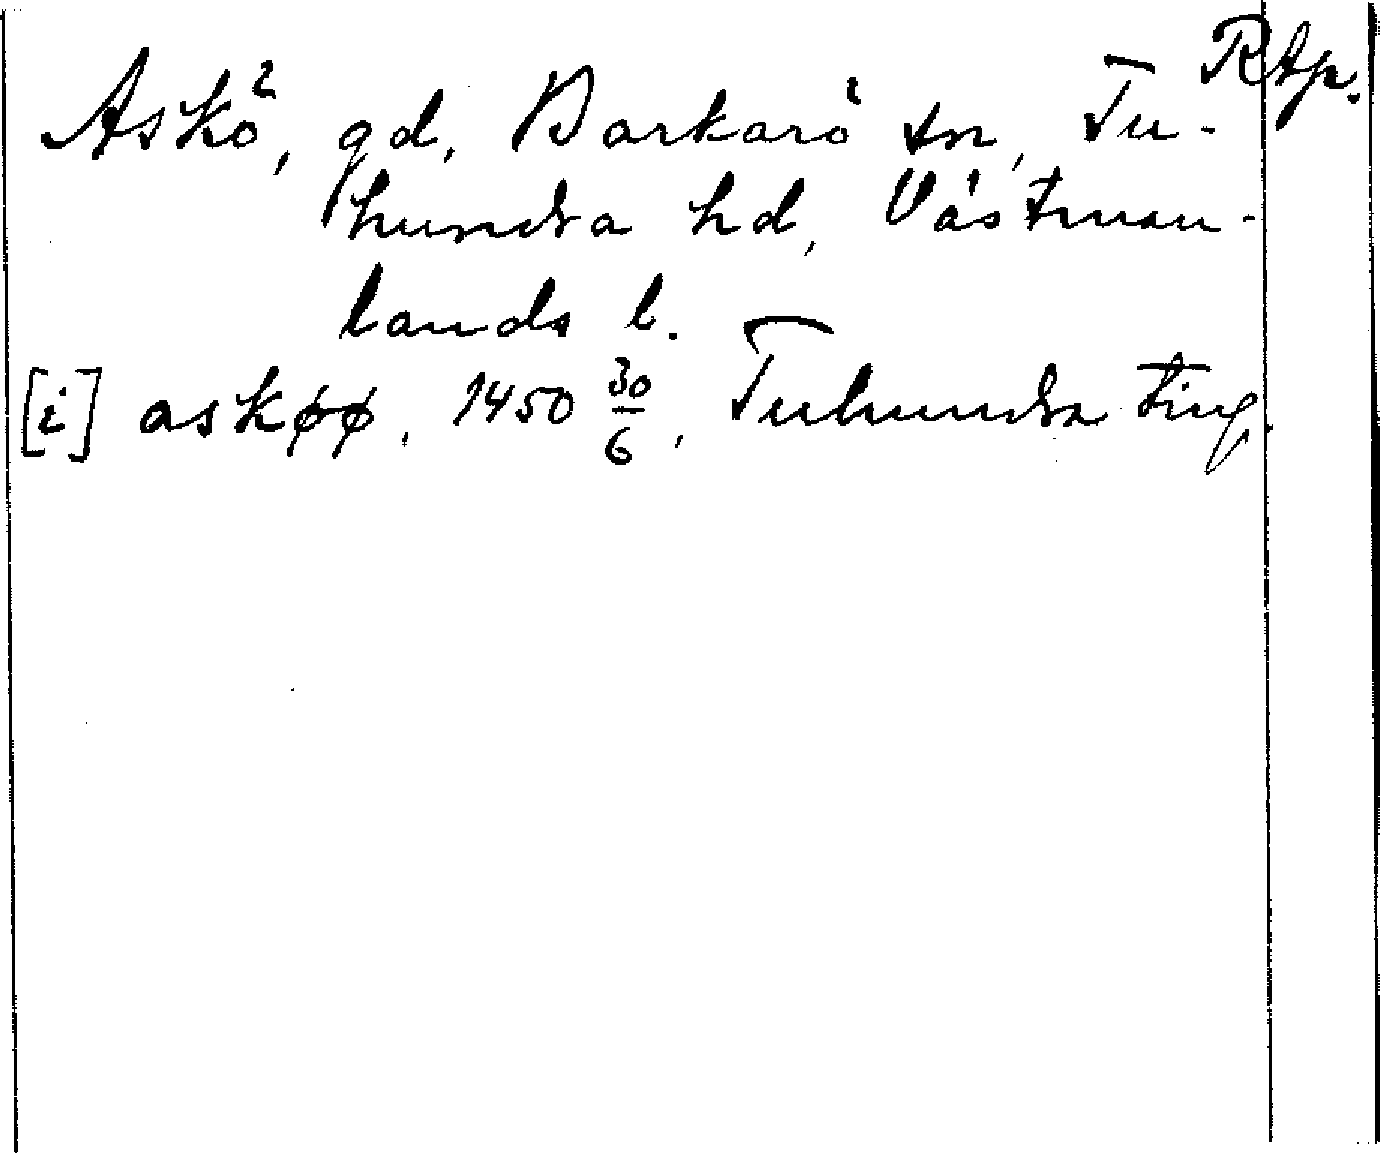 RAp.
Askö, gd, Barkarö sn, Tu-
hundra hd, Västman-
lands l.
[i] askøø, 1450 30/6, Tuhundra ting.